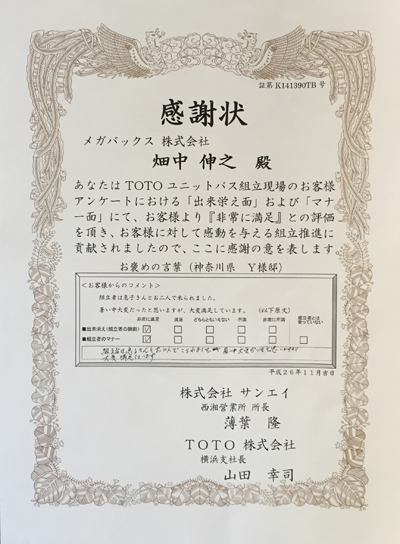 証第 K141390TB 号
感謝状
メガバックス 株式会社
畑中 伸之 殿
あなたは TOTO ユニットバス組立現場のお客様
アンケートにおける「出来栄え面」および「マナ
ー面」にて、お客様より『非常に満足』との評価
を頂き、お客様に対して感動を与える組立推進に
貢献されましたので、ここに感謝の意を表します
お褒めの言葉（神奈川県 Y様邸）
＜お客様からのコメント＞
組立者は息子さんとお二人で来られました。
暑い中大変だったと思いますが、大変満足しています。（以下原文）
非常に満足 満足 どちらともいえない 不満 非常に不満 組立者とは会っていない
■出来栄え（組立者の技術）
■組立者のマナー
平成26年11月吉日
株式会社 サンエイ
西湘営業所 所長
薄葉 隆
TOTO 株式会社
横浜支社長
山田 幸司